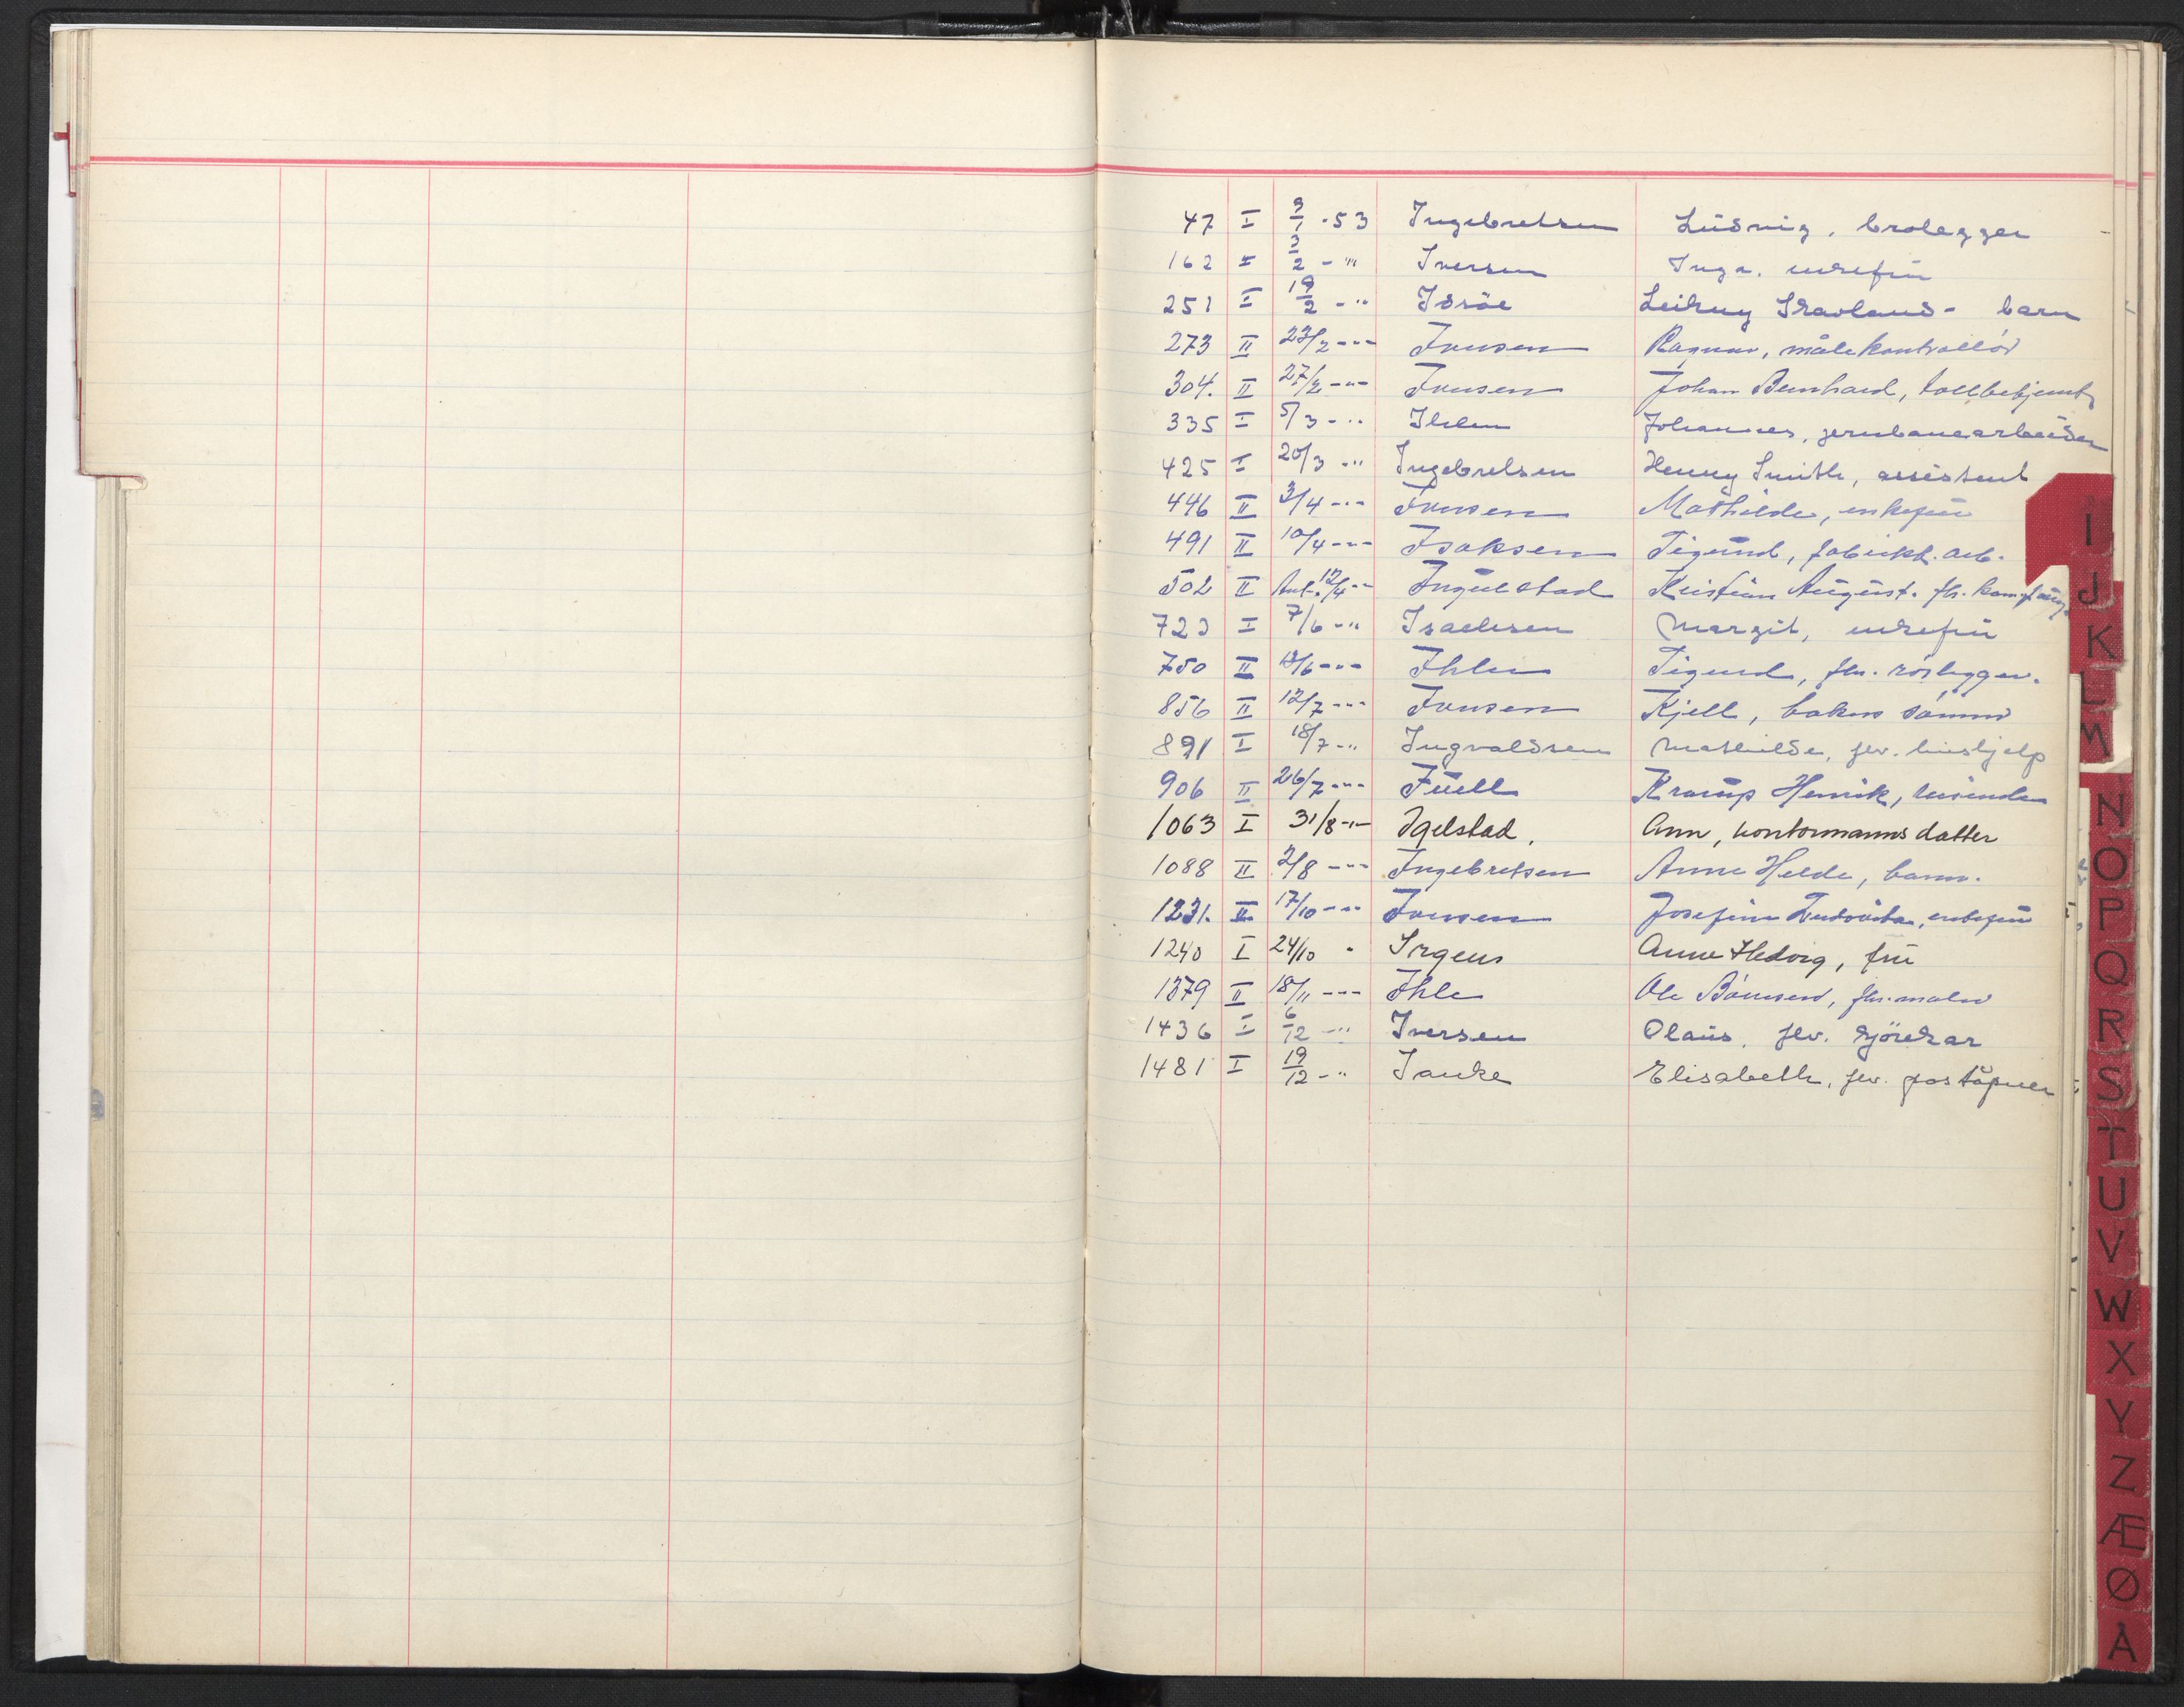 47 I 9/1 -53 Ingebretsen Ludvig, brolegger
162 I 3/2 - " Iversen Inga, enkefru
251 I 19/2 - " Isråe Leikny - barn
273 II 23/2 - " - Iversen Ragnar, målekontrollør
304. II 27/2 - " - Iversen Johan Bernhard, tollbetjent
335 I 5/3 - " Ihlen Johannes, jernbanearbeider
425 I 20/3 - " Ingebretsen Henny Smith, assistent
446 II 3/4 - " - Iversen Mathilde, enkefru
491 II 10/4 - " - Isaksen Sigurd, fabrikk. arb.
502 II Ant. 12/4 - " Ingulstad Kristian August. fh.
723 I 7/6 - " Isachsen Margit, enkefru
750 II 13/6 - " - Ihlen Sigurd, fhv. rørlegger.
856 II 12/7 - " - Iversen Kjell, bakersvenn
891 I 18/7 - " Ingvaldsen Mathilde, fhv. hushjelp
906 II 26/7 - " - Juell Kramp Henrik, reisende
1063 I 31/8 - " - Igelstad. Ann, kontormanns datter
1088 II 2/8 - " - Ingebretsen Anne Helde, barn.
1231. II 17/10 - " - Iversen Josefine, enkefru
1240 I 24/10 " Irgens Anne Hedvig, fru
1379 II 18/11 - " - Ihle Ole, fhv. maler
1436 I 6/12 - " Iversen Olaus, fhv. kjørekar
1481 I 19/12 - " Janke Elisabeth, fhv. poståpner
I
J
K
L
M
N
O
P
Q
R
S
T
U
V
W
X
Y
Z
Æ
Ø
A